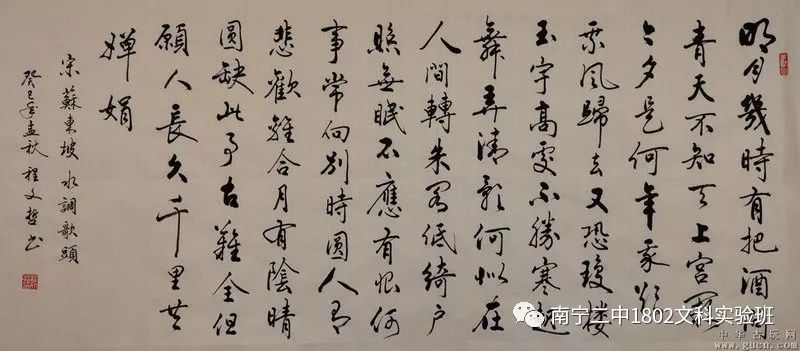 明月幾時有把酒问
青天不知天上宫阙
今夕是何年我欲
乘風歸去又恐瓊楼
玉宇高處不勝寒起
舞弄清影何似在
人間轉朱阁低綺户
照無眠不應有恨何
事常向别時圆人有
悲歡離合月有陰晴
圆缺此事古難全但
願人長久千里共
嬋娟
宋蘇東坡水調歌頭
癸巳年孟秋程文哲书
南宁三中1802文科实验班
中华古玩网
www.gucn.com